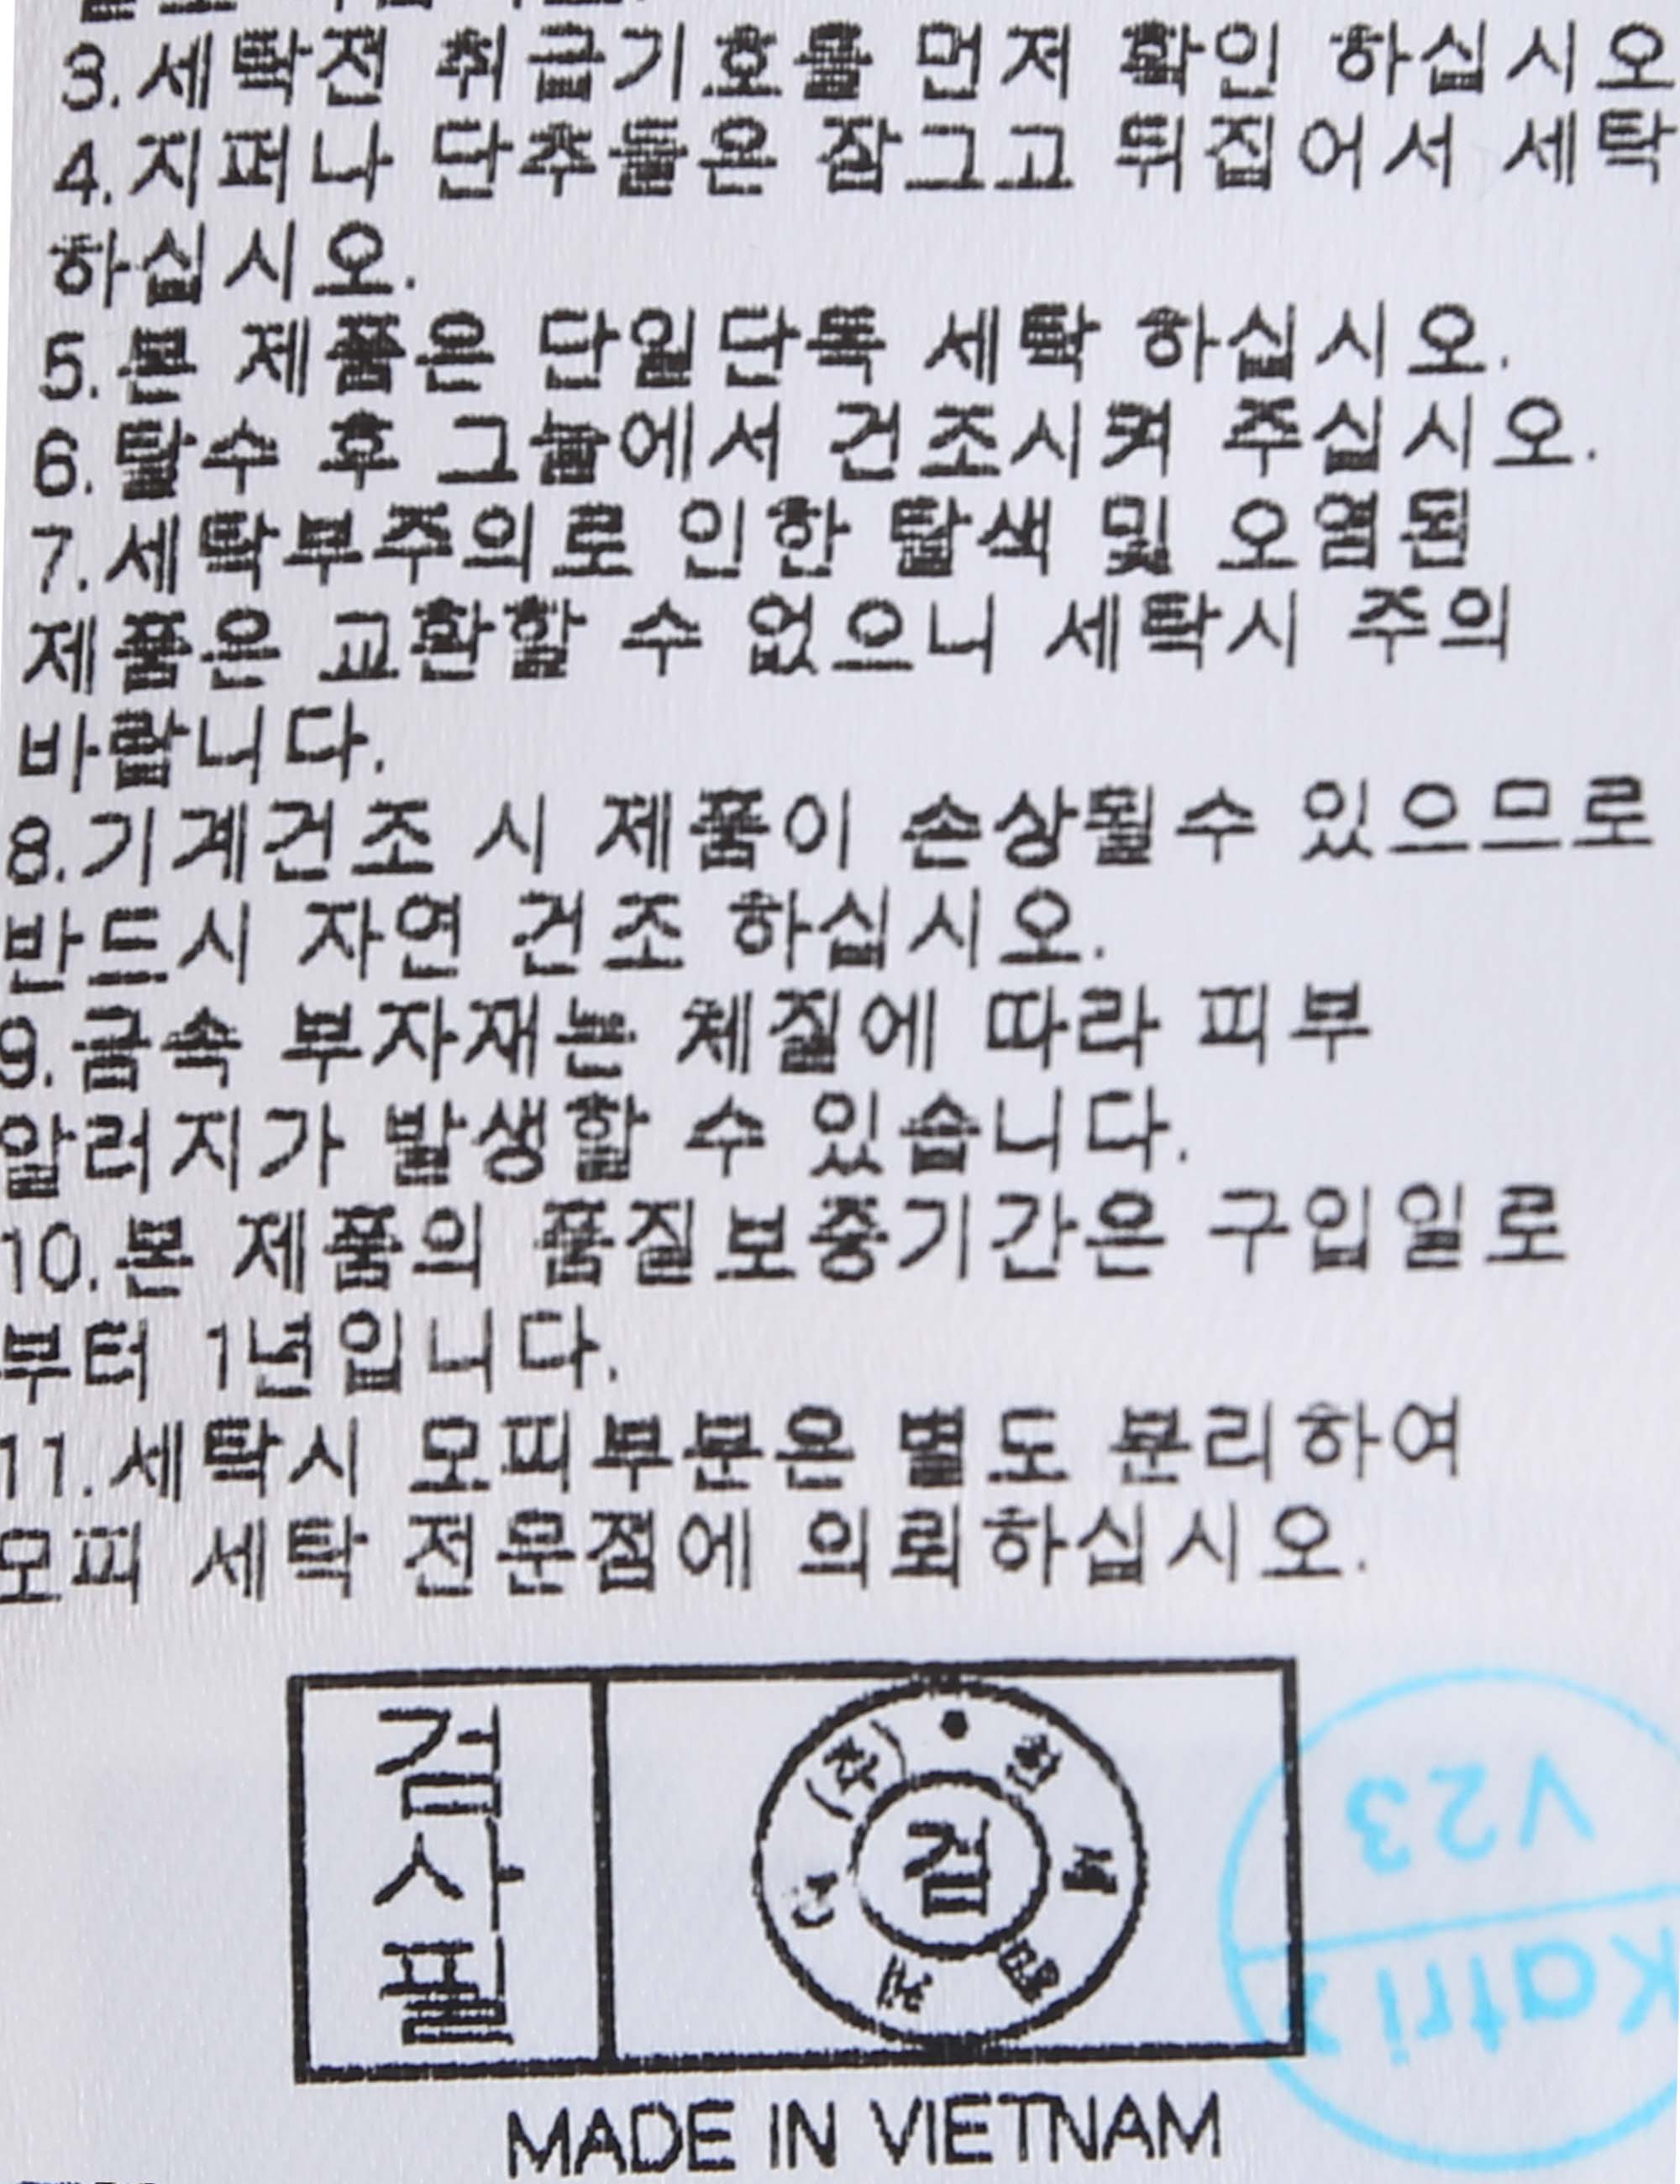 3.세탁전 취급기호를 먼저 확인 하십시오
4.지퍼나 단추들은 잠그고 뒤집어서 세탁
하십시오.
5.본 제품은 단일단독 세탁 하십시오.
6.탈수 후 그늘에서 건조시켜 주십시오.
7.세탁부주의로 인한 탈색 및 오염된
제품은 교환할 수 없으니 세탁시 주의
바랍니다.
8.기계건조 시 제품이 손상될수 있으므로
반드시 자연 건조 하십시오.
9.금속 부자재는 체질에 따라 피부
알러지가 발생할 수 있습니다.
10.본 제품의 품질보증기간은 구입일로
부터 1년입니다.
11.세탁시 모피부분은 별도 분리하여
모피 세탁 전문점에 의뢰하십시오.
검사필
검
V23
Katri
MADE IN VIETNAM